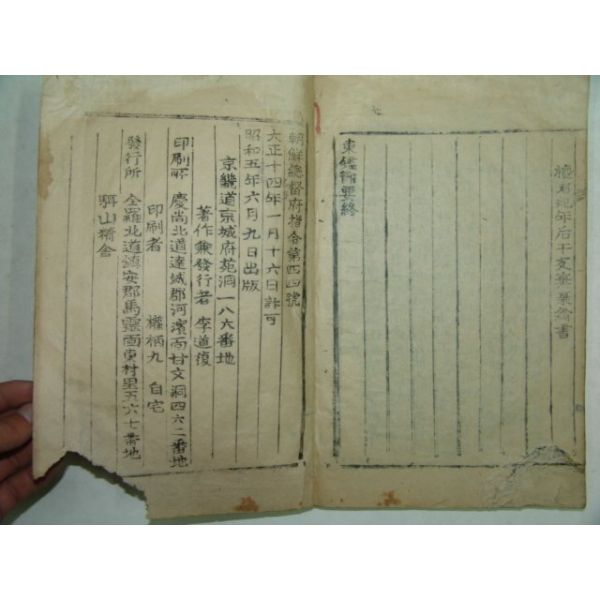 東鑑輯要終
朝鮮總督府指令第四四號
大正十四年一月十六日許可
昭和五年六月九日出版
京畿道京城府苑洞一八六番地
著作兼發行者 李道復
印刷所 慶尚北道達城郡河濱面甘文洞四六二番地
印刷者 權炳九 自宅
發行所 全羅北道鎭安郡馬靈面東村里五六七番地
駬山精舍